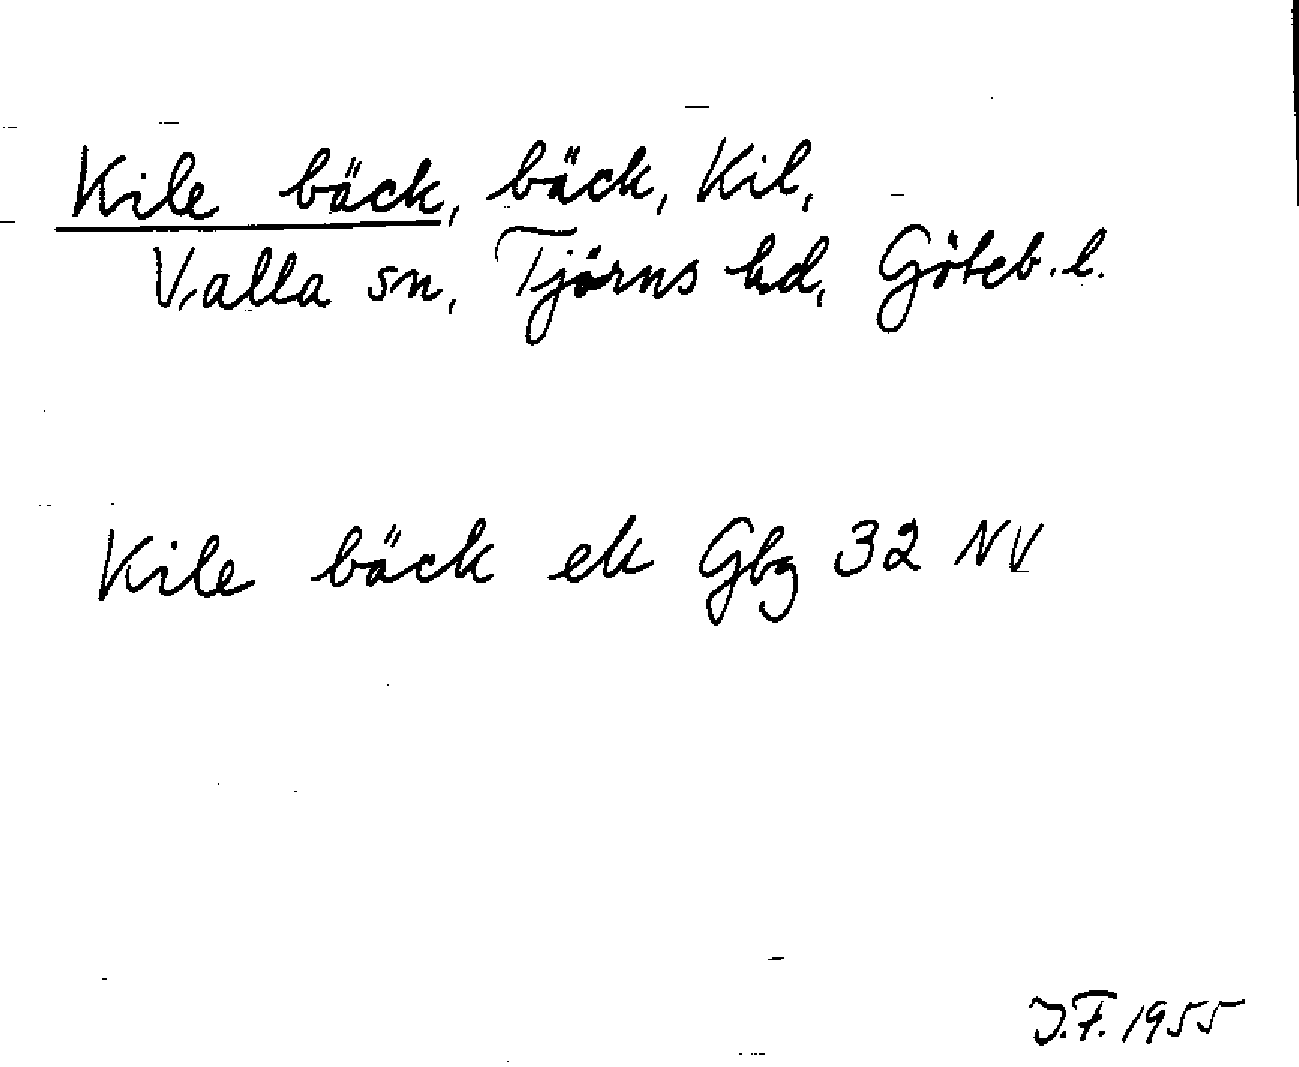 Kile bäck, bäck, Kil,
Valla sn, Tjörns hd, Göteb. l.
Kile bäck ek Gbg 32 NV
J.F. 1955